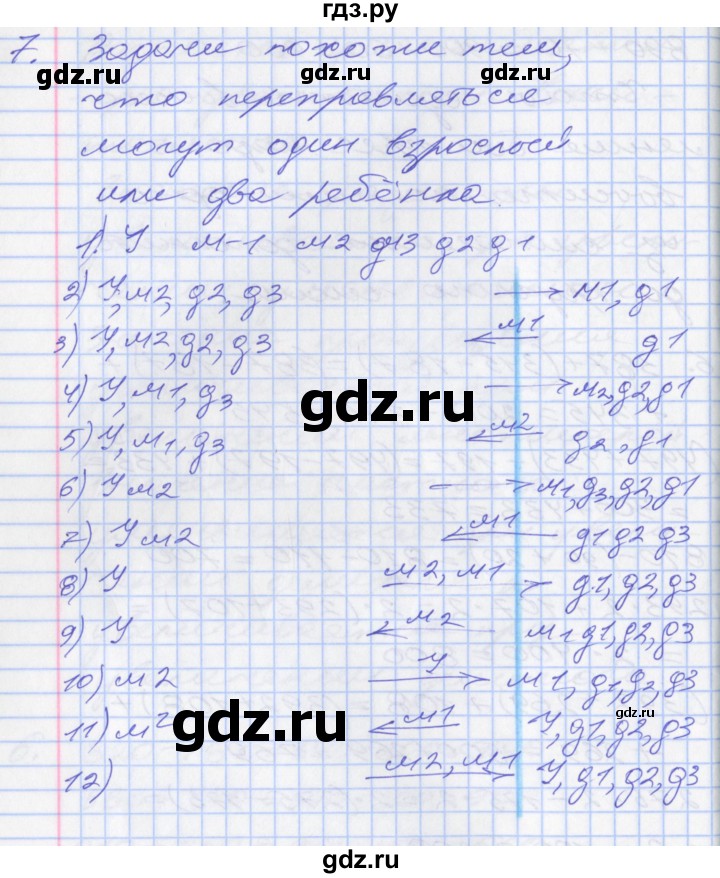 гдз.ру
7. Задачи похожи тем,
gdz.ru gdz.ru
что переправляться
могут один взрослый
или два ребёнка.
1) У м-1 м2 д3 д2 д1
2) У, м2, д2, д3 → м1, д1
3) У, м2, д2, д3 ← м1 д1
4) У, м1, д3 → м2, д2, д1
gdz.ru
5) У, м1, д3 ← м2 д2, д1
6) У м2 → м1, д3, д2, д1
7) У м2 ← м1 д1 д2 д3
gdz.ru gdz.ru
8) У м2, м1 → д1, д2, д3
9) У ← м2 м1 д1, д2, д3
10) м2 У → м1, д1, д2, д3
gdz.ru gdz.ru
11) м2 ← м1 У, д1, д2, д3
12) м2, м1 → У, д1, д2, д3
gdz.ru